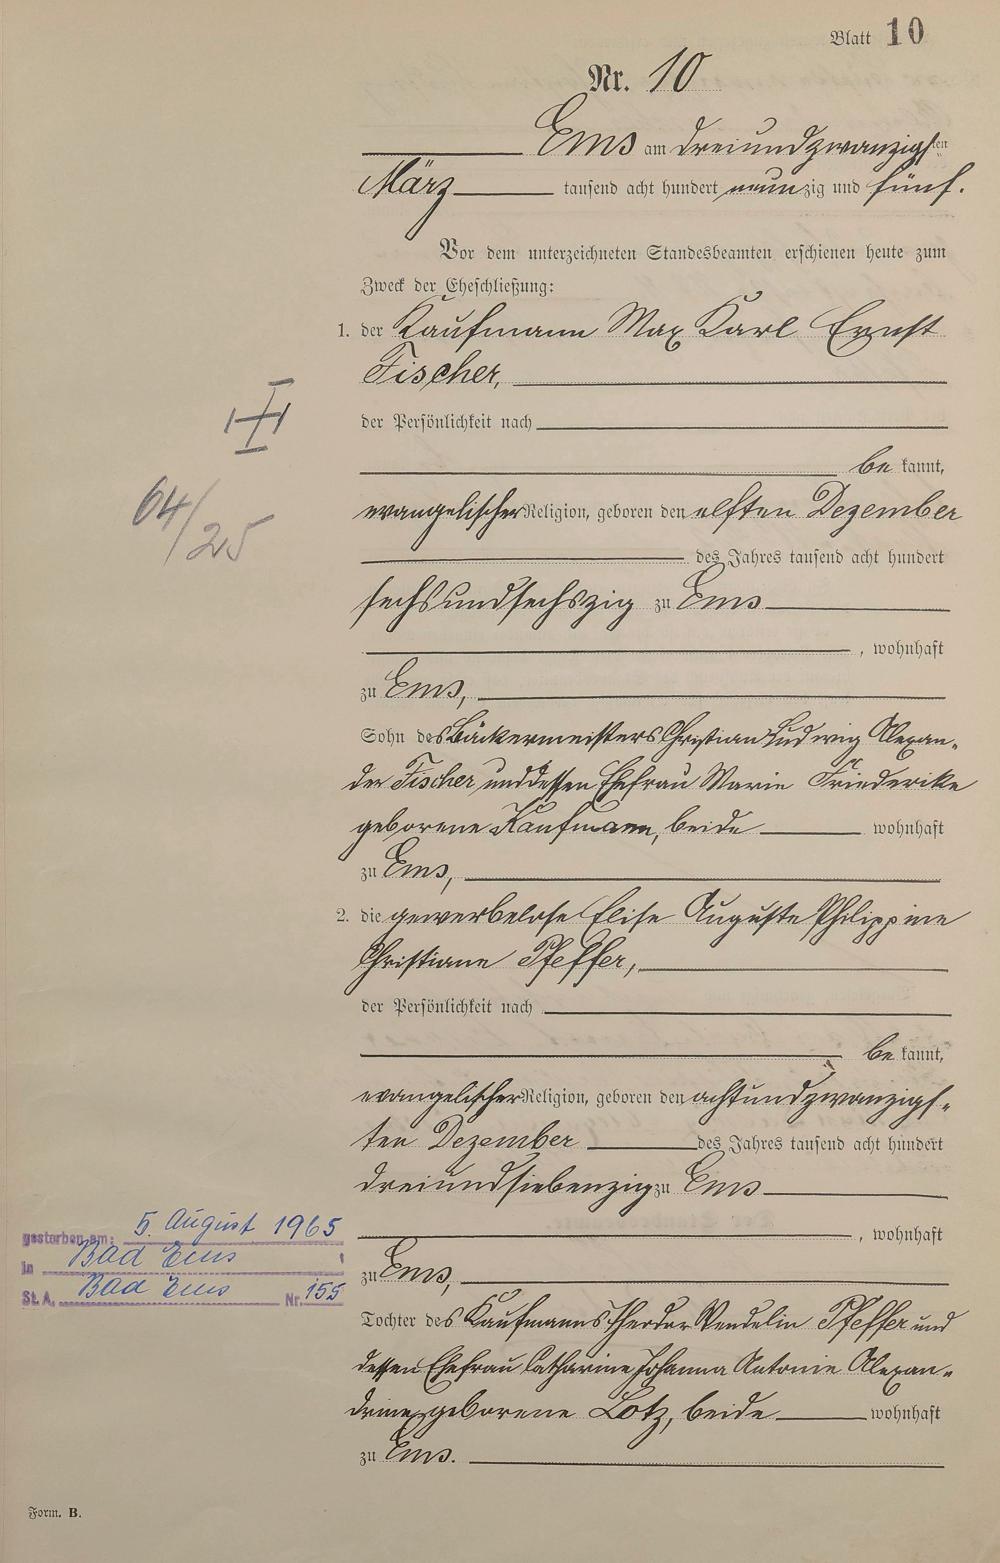 Blatt 10
Nr. 10
Ems am dreiundzwanzigsten
März tausend acht hundert neunzig und fünf.
Vor dem unterzeichneten Standesbeamten erschienen heute zum
Zweck der Eheschließung:
1. der Kaufmann Max Karl Ernst
Fischer,
der Persönlichkeit nach
be kannt,
evangelischer Religion, geboren den elften Dezember
des Jahres tausend acht hundert
sechsundsechszig zu Ems
, wohnhaft
zu Ems,
64/25
Sohn des Bäckermeisters Christian Ludwig Alexan-
der Fischer und dessen Ehefrau Marie Friederike
geborene Kaufmann, beide wohnhaft
zu Ems,
2. die gewerbelose Elise Auguste Philippine
Christiane Pfeffer,
der Persönlichkeit nach
be kannt,
evangelischer Religion, geboren den achtundzwanzigs-
ten Dezember des Jahres tausend acht hundert
dreiundsiebenzig zu Ems
, wohnhaft
zu Ems,
gestorben am: 5. August 1965
in Bad Ems
St. A. Bad Ems Nr. 155
Tochter des Kaufmanns Theodor Wendelin Pfeffer und
dessen Ehefrau Catharine Johanna Antonie Alexan-
drine geborene Lotz, beide wohnhaft
zu Ems.
Form. B.